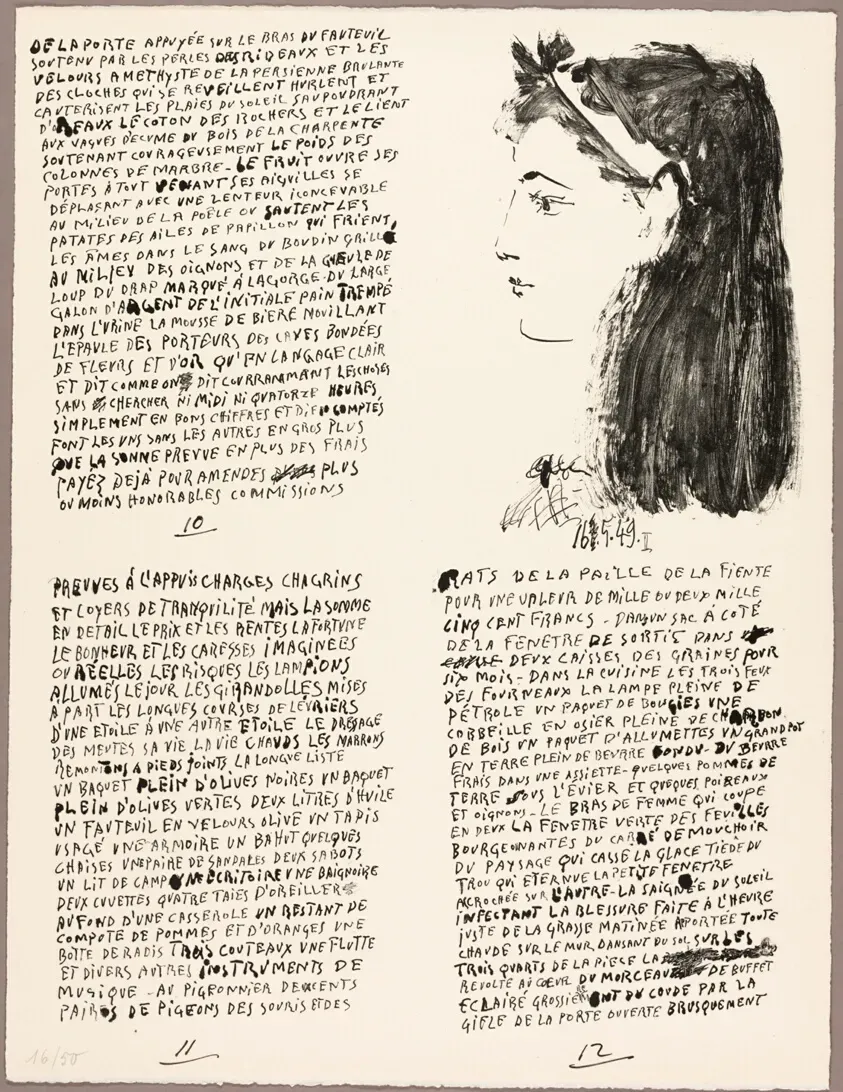 DE LA PORTE APPUYÉE SUR LE BRAS DU FAUTEUIL
SOUTENU PAR LES PERLES DES RIDEAUX ET LES
VELOURS AMETHYSTE DE LA PERSIENNE BRULANTE
DES CLOCHES QUI SE REVEILLENT HURLENT ET
CAUTERISENT LES PLAIES DU SOLEIL SAUPOUDRANT
LE COTON DES ROCHERS ET LE LIENT
AUX VAGUES D'ECUME DU BOIS DE LA CHARPENTE
SOUTENANT COURAGEUSEMENT LE POIDS DES
COLONNES DE MARBRE - LE FRUIT OUVRE SES
PORTES À TOUT VENANT SES AIGUILLES SE
DÉPLAÇANT AVEC UNE LENTEUR ICONCEVABLE
AU MILIEU DE LA POÊLE OU SAUTENT LES
PATATES DES AILES DE PAPILLON QUI FRIENT
LES ÂMES DANS LE SANG DU BOUDIN GRILLÉ
AU MILIEU DES OIGNONS ET DE LA GUEULE DE
LOUP DU DRAP MARQUÉ À LA GORGE DU LARGE
GALON D'ARGENT DE L'INITIALE PAIN TREMPÉ
DANS L'URINE LA MOUSSE DE BIERE MOUILLANT
L'EPAULE DES PORTEURS DES CAVES BONDÉES
DE FLEURS ET D'OR QU'EN LANGAGE CLAIR
ET DIT COMME ON DIT COURRAMMANT LES CHOSES
SANS CHERCHER NI MIDI NI QUATORZE HEURES
SIMPLEMENT EN BONS CHIFFRES ET COMPTÉS
FONT LES UNS SANS LES AUTRES EN GROS PLUS
QUE LA SONNE PREUVE EN PLUS DES FRAIS
PAYEZ DEJÀ POUR AMENDES PLUS
OU MOINS HONORABLES COMMISSIONS
10
16.5.49.II
PREUVES Á L'APPUIS CHARGES CHAGRINS
ET LOYERS DE TRANQUILITÉ MAIS LA SOMME
EN DETAIL LE PRIX ET LES RENTES LA FORTUNE
LE BONHEUR ET LES CARESSES IMAGINEES
OU RÉELLES LES RISQUES LES LAMPIONS
ALLUMÉS LE JOUR LES GIRANDOLLES MISES
A PART LES LONGUES COURSES DE LEVRIERS
D'UNE ETOILE À UNE AUTRE ETOILE LE DRESSAGE
DES MEUTES SA VIE LA VIE CHAUDS LES MARRONS
REMONTONS A PIEDS JOINTS LA LONGUE LISTE
UN BAQUET PLEIN D'OLIVES NOIRES UN BAQUET
PLEIN D'OLIVES VERTES DEUX LITRES D'HUILE
UN FAUTEUIL EN VELOURS OLIVE UN TAPIS
USAGÉ UNE ARMOIRE UN BAHUT QUELQUES
CHAISES UNE PAIRE DE SANDALES DEUX SABOTS
UN LIT DE CAMP UNE ECRITOIRE UNE BAIGNOIRE
DEUX CUVETTES QUATRE TAIES D'OREILLER
AU FOND D'UNE CASSEROLE UN RESTANT DE
COMPOTE DE POMMES ET D'ORANGES UNE
BOITE DE RADIS TROIS COUTEAUX UNE FLUTTE
ET DIVERS AUTRES INSTRUMENTS DE
MUSIQUE - AU PIGEONNIER DEUX CENTS
PAIRES DE PIGEONS DES SOURIS ET DES
11
RATS DE LA PAILLE DE LA FIENTE
POUR UNE VALEUR DE MILLE OU DEUX MILLE
CINQ CENT FRANCS - DANS UN SAC À COTÉ
DE LA FENETRE DE SORTIE DANS
DEUX CAISSES DES GRAINES POUR
SIX MOIS - DANS LA CUISINE LES TROIS FEUX
DES FOURNEAUX LA LAMPE PLEINE DE
PÉTROLE UN PAQUET DE BOUGIES UNE
CORBEILLE EN OSIER PLEINE DE CHARBON
DE BOIS UN PAQUET D'ALLUMETTES UN GRAND POT
EN TERRE PLEIN DE BEURRE FONDU - DU BEURRE
FRAIS DANS UNE ASSIETTE - QUELQUES POMMES DE
TERRE SOUS L'ÉVIER ET QUEQUES POIREAUX
ET OIGNONS - LE BRAS DE FEMME QUI COUPE
EN DEUX LA FENETRE VERTE DES FEUILLES
BOURGEONNANTES DU CARRÉ DE MOUCHOIR
DU PAYSAGE QUI CASSE LA GLACE TIEDE DU
TROU QUI ETERNUE LA PETITE FENETRE
ACCROCHÉE SUR L'AUTRE - LA SAIGNÉE DU SOLEIL
INFECTANT LA BLESSURE FAITE À L'HEURE
JUSTE DE LA GRASSE MATINÉE APORTÉE TOUTE
CHAUDE SUR LE MUR DANSANT DU SOL SUR LES
TROIS QUARTS DE LA PIECE LA
REVOLTE AU COEUR DU MORCEAU DE BUFFET
ECLAIRÉ GROSSIEMENT DU COUDE PAR LA
GIFLE DE LA PORTE OUVERTE BRUSQUEMENT
12
16/50